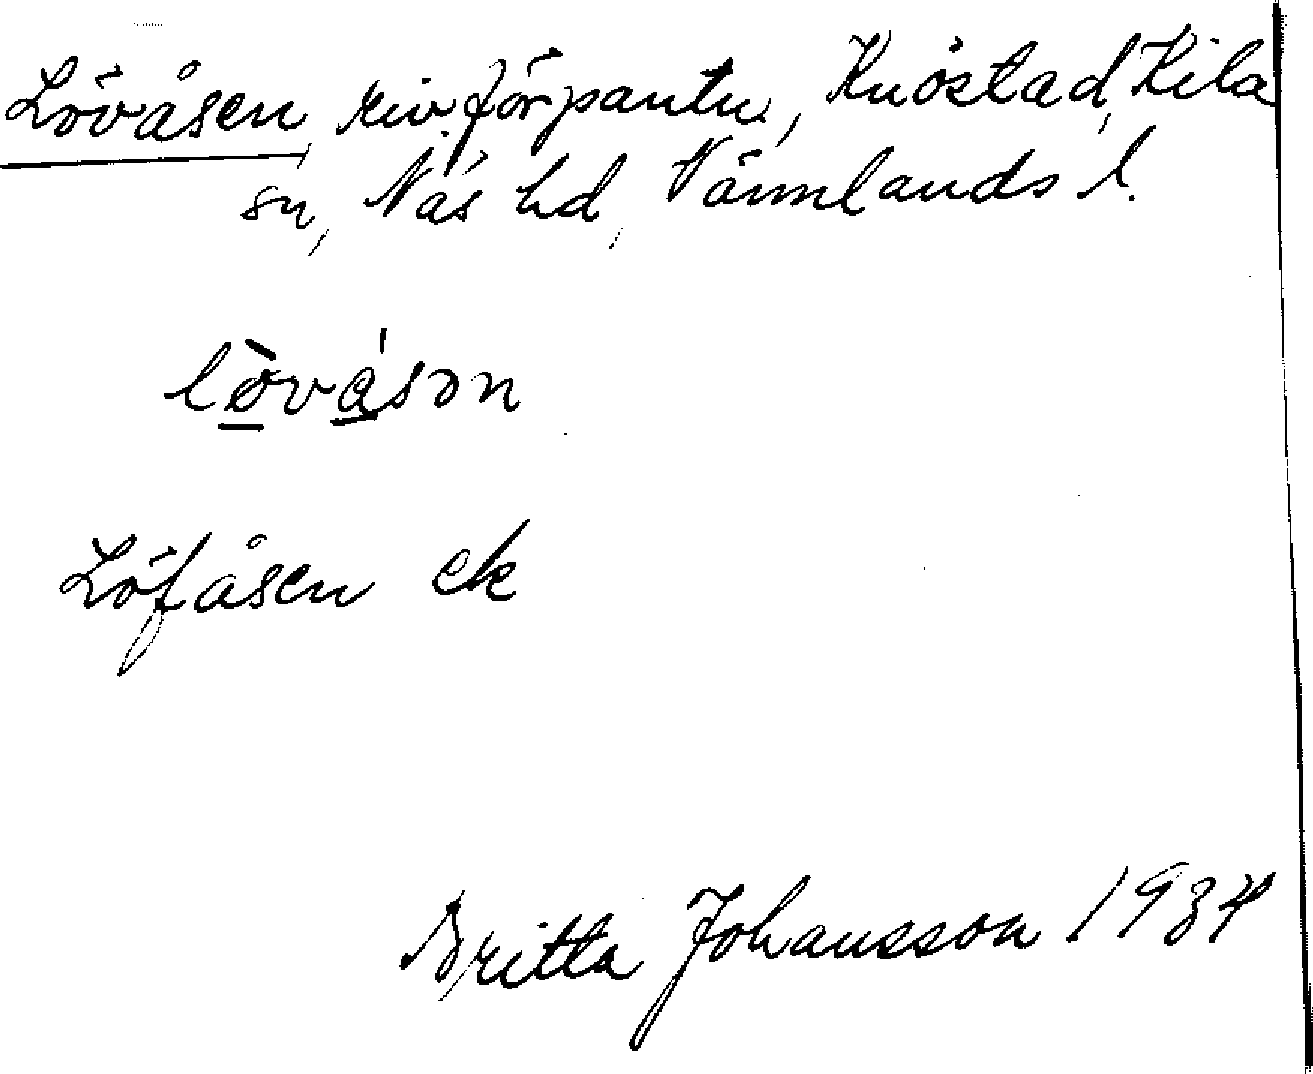 Lövåsen riv. förpantn., Knöstad, Kila
sn, Näs hd, Värmlands l.
lòvásən
Löfåsen ek
Britta Johansson 1934